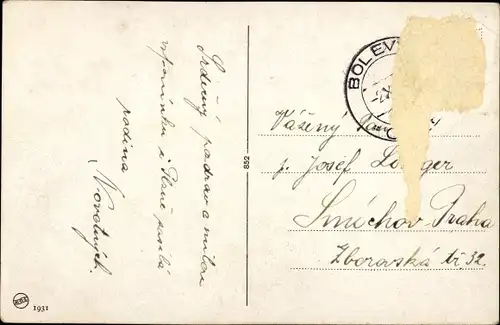 Srdečný pozdrav a milou
vzpomínku z Plané posílá
rodina
Novotných.
1931
852
BOLEV
Vážený Pan
p. Josef
Smíchov-Praha
Zborovská tř. 32.